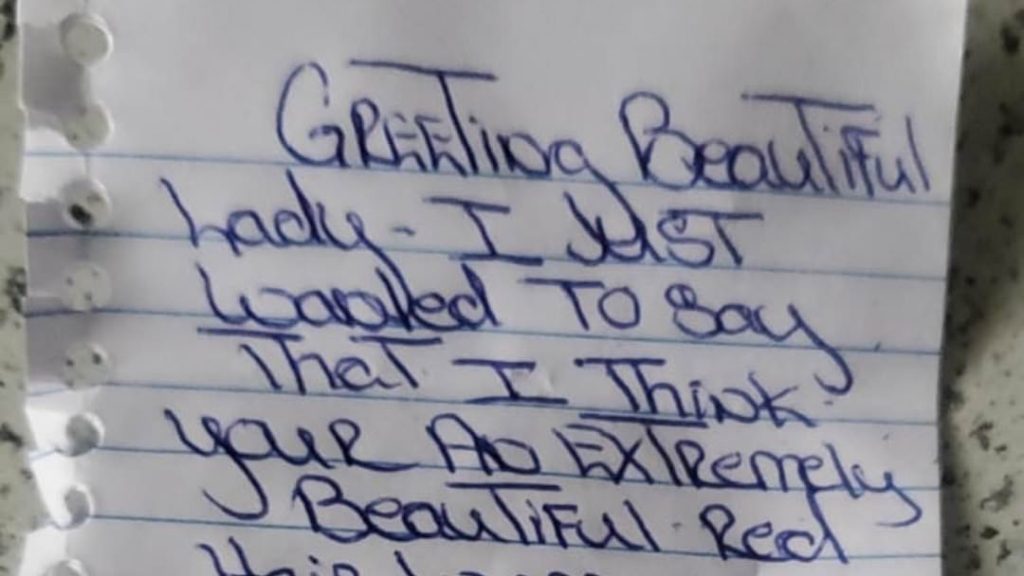 GREETing BeautiFul
Lady- I JUST
wanted TO Say
That I Think
youR An EXTRemely
BeautiFul Red
Hair